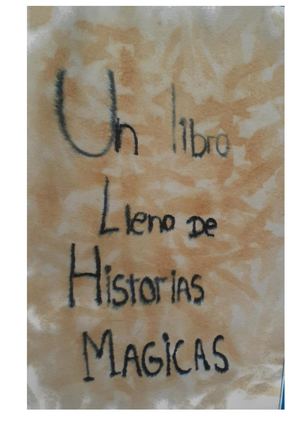 Un libro
Lleno de
Historias
MAGICAS